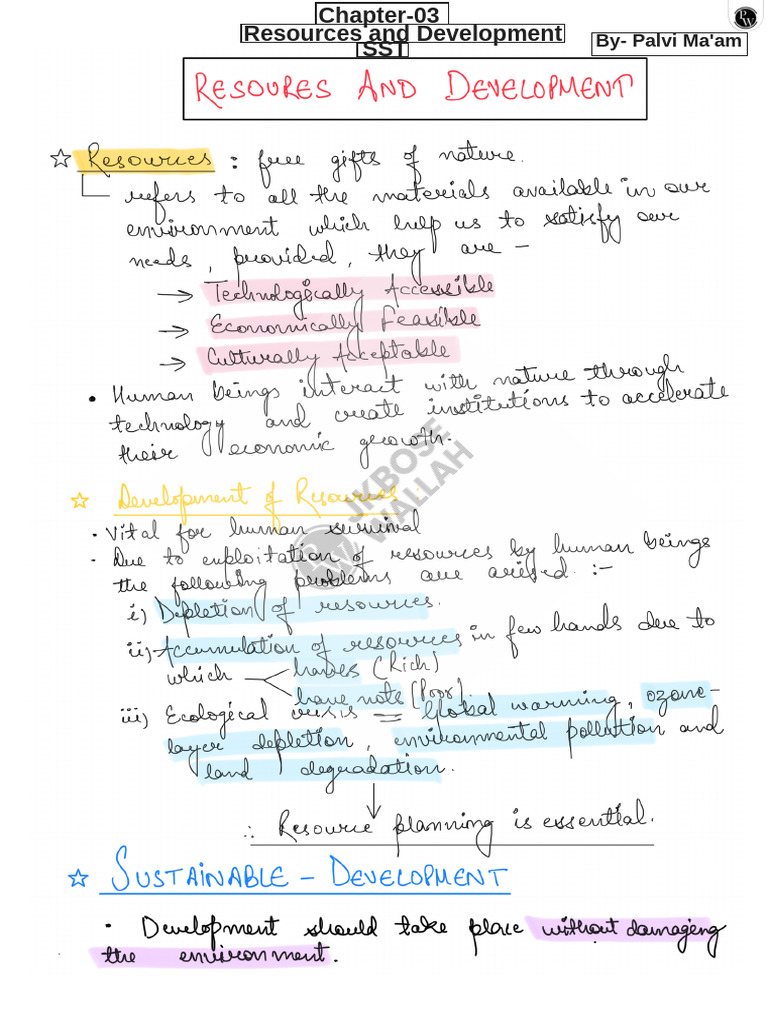 Chapter-03
Resources and Development
SST
By- Palvi Ma'am
PW
RESOURES AND DEVELOPMENT
☆ Resources : free gifts of nature.
refers to all the materials available in our
environment which help us to satisfy our
needs, provided, they are –
→ Technologically Accessible
→ Economically Feasible
→ Culturally Acceptable
• Human beings interact with nature through
technology and create institutions to accelerate
their economic growth.
JKBOSE
WALLAH
PW
☆ Development of Resources :
• Vital for human survival
• Due to exploitation of resources by human beings
the following problems are arised :-
i) Depletion of resources.
ii) Accumulation of resources in few hands due to
which haves (Rich)
have nots (Poor)
iii) Ecological crisis = Global warming, ozone-
layer depletion, environmental pollution and
land degradation.
↓
∴ Resource planning is essential.
☆ SUSTAINABLE – DEVELOPMENT
• Development should take place without damageng
the environment.